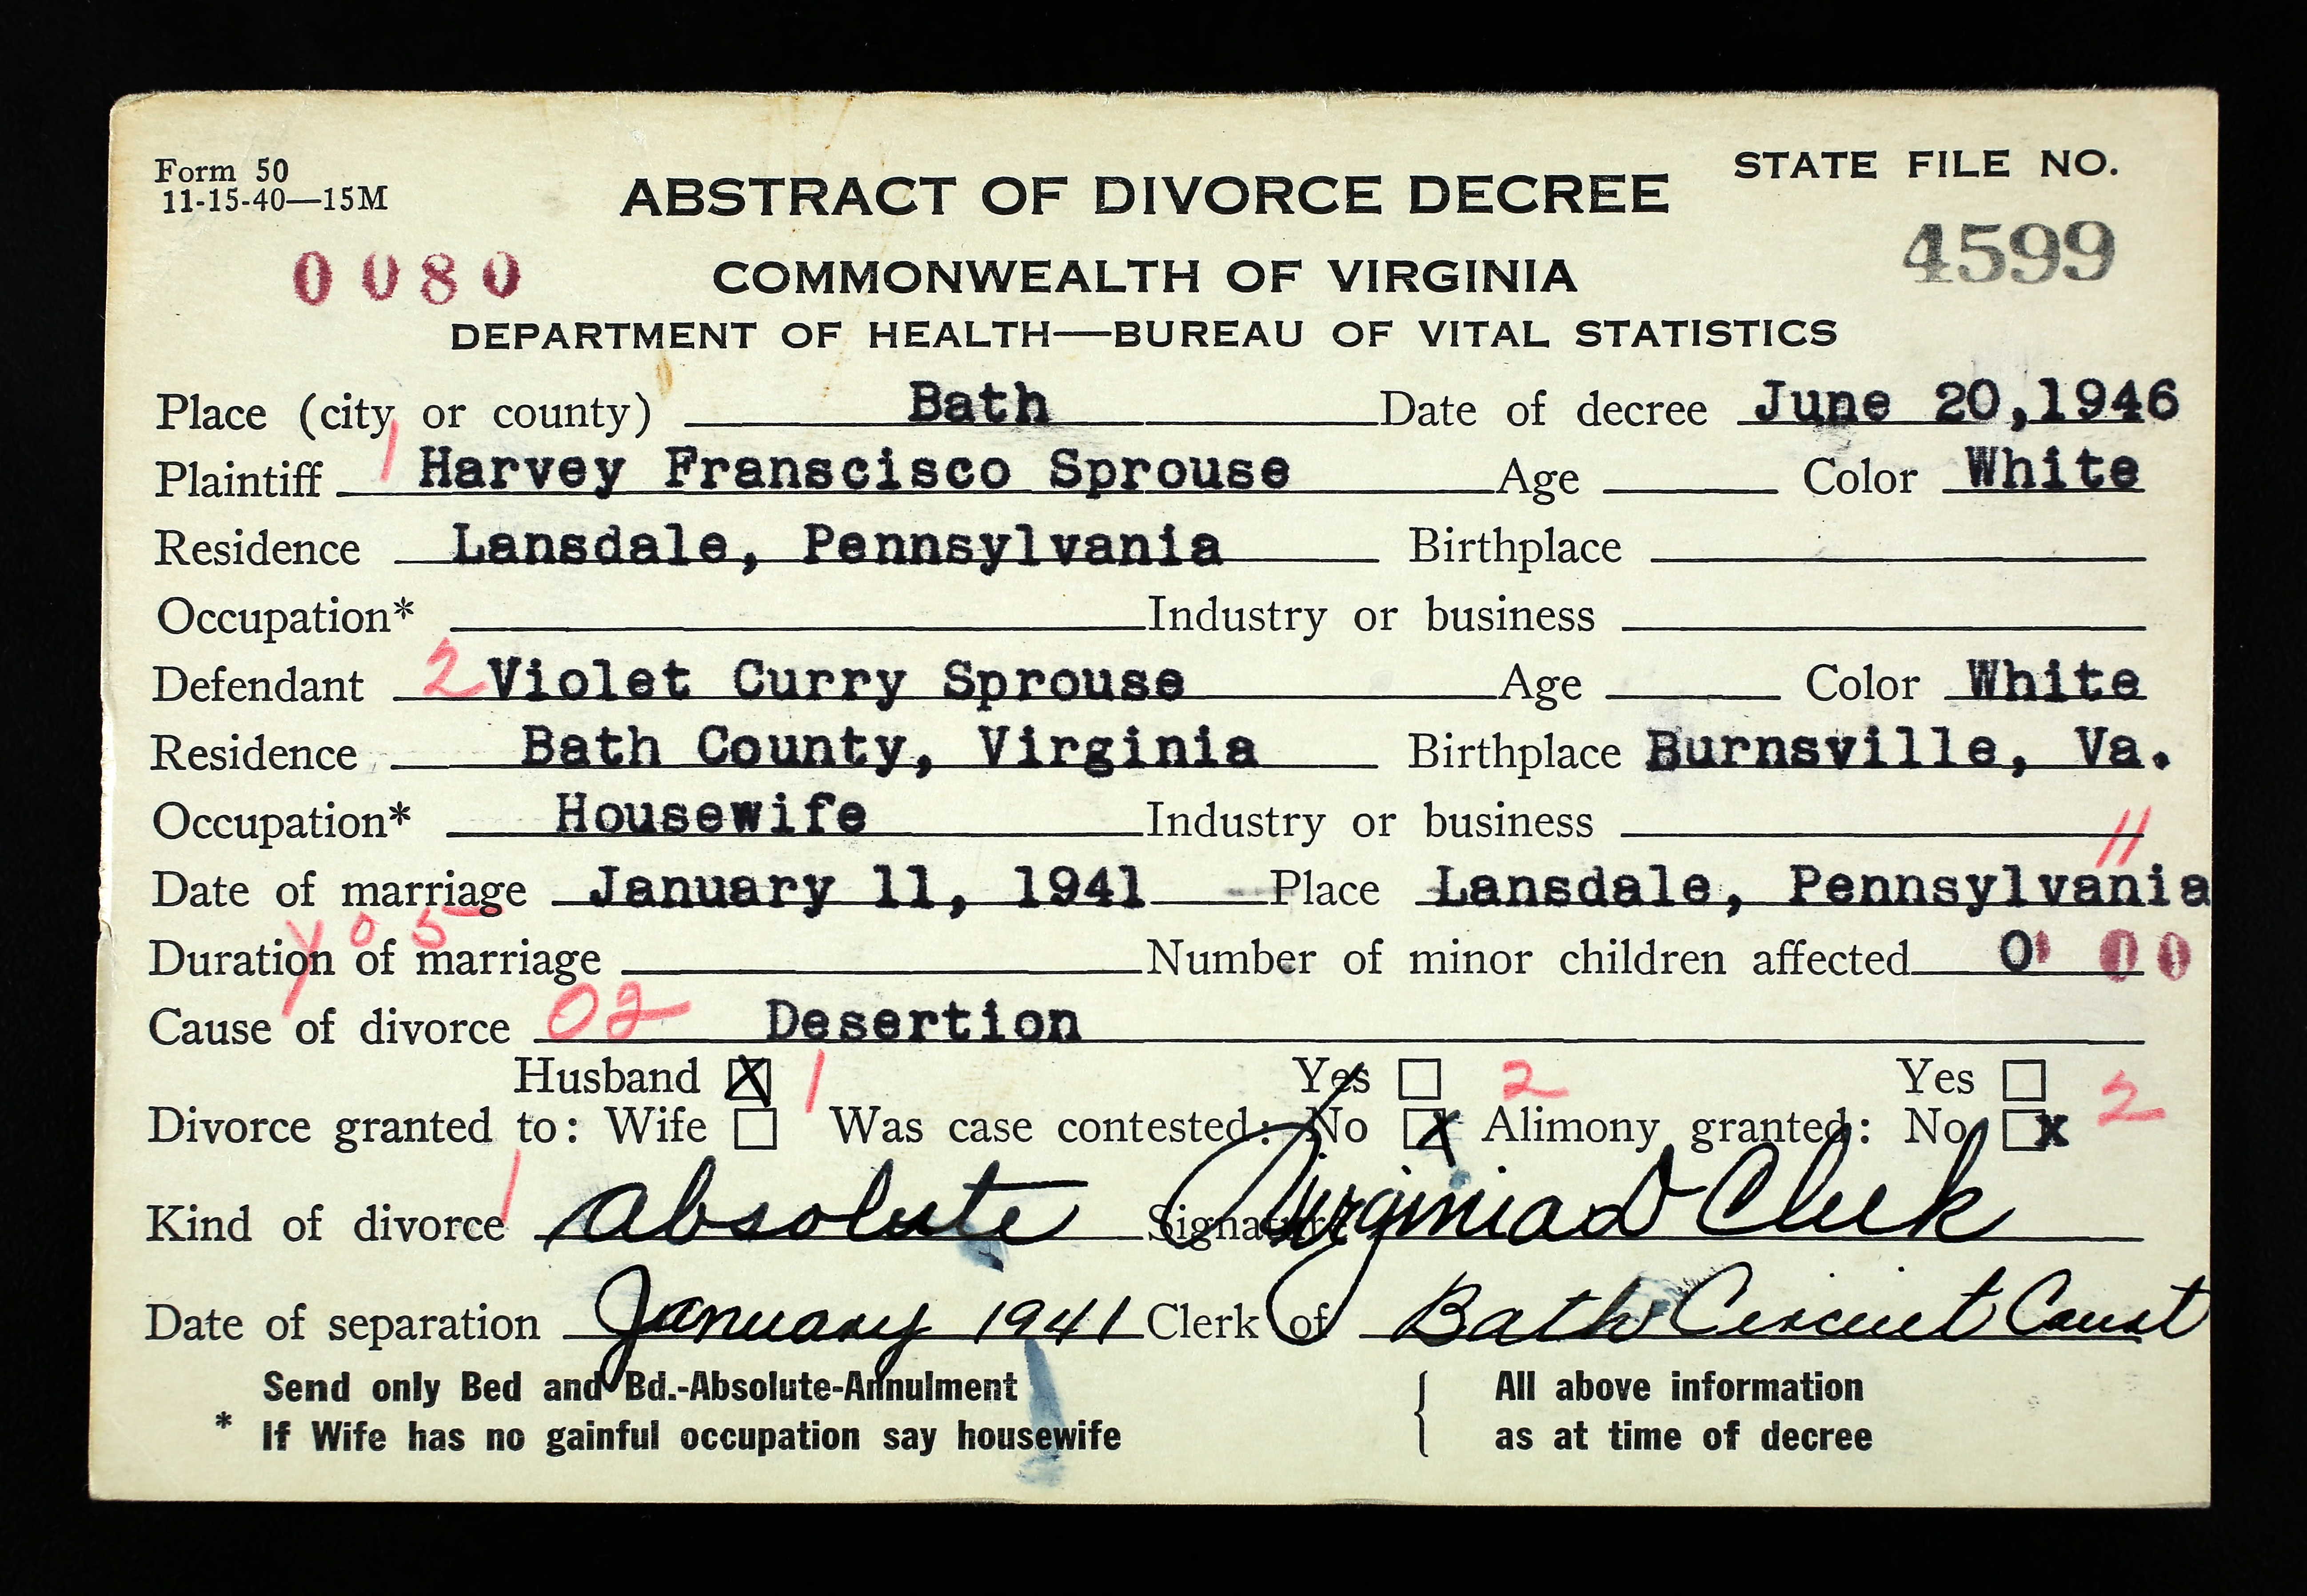 Form 50
11-15-40—15M
STATE FILE NO.
ABSTRACT OF DIVORCE DECREE
0080
COMMONWEALTH OF VIRGINIA
4599
DEPARTMENT OF HEALTH—BUREAU OF VITAL STATISTICS
Place (city or county) Bath Date of decree June 20,1946
Plaintiff 1 Harvey Franscisco Sprouse Age Color White
Residence Lansdale, Pennsylvania Birthplace
Occupation* Industry or business
Defendant 2 Violet Curry Sprouse Age Color White
Residence Bath County, Virginia Birthplace Burnsville, Va.
Occupation* Housewife Industry or business
11
Date of marriage January 11, 1941 Place Lansdale, Pennsylvania
y 0 5
Duration of marriage Number of minor children affected 0 00
Cause of divorce 02 Desertion
Husband X 1 Yes 2 Yes 2
Divorce granted to: Wife Was case contested: No X Alimony granted: No x
Kind of divorce 1 absolute Signature Virginia D Cleek
Date of separation January 1941 Clerk of Bath Circuit Court
Send only Bed and Bd.-Absolute-Annulment { All above information
* If Wife has no gainful occupation say housewife as at time of decree